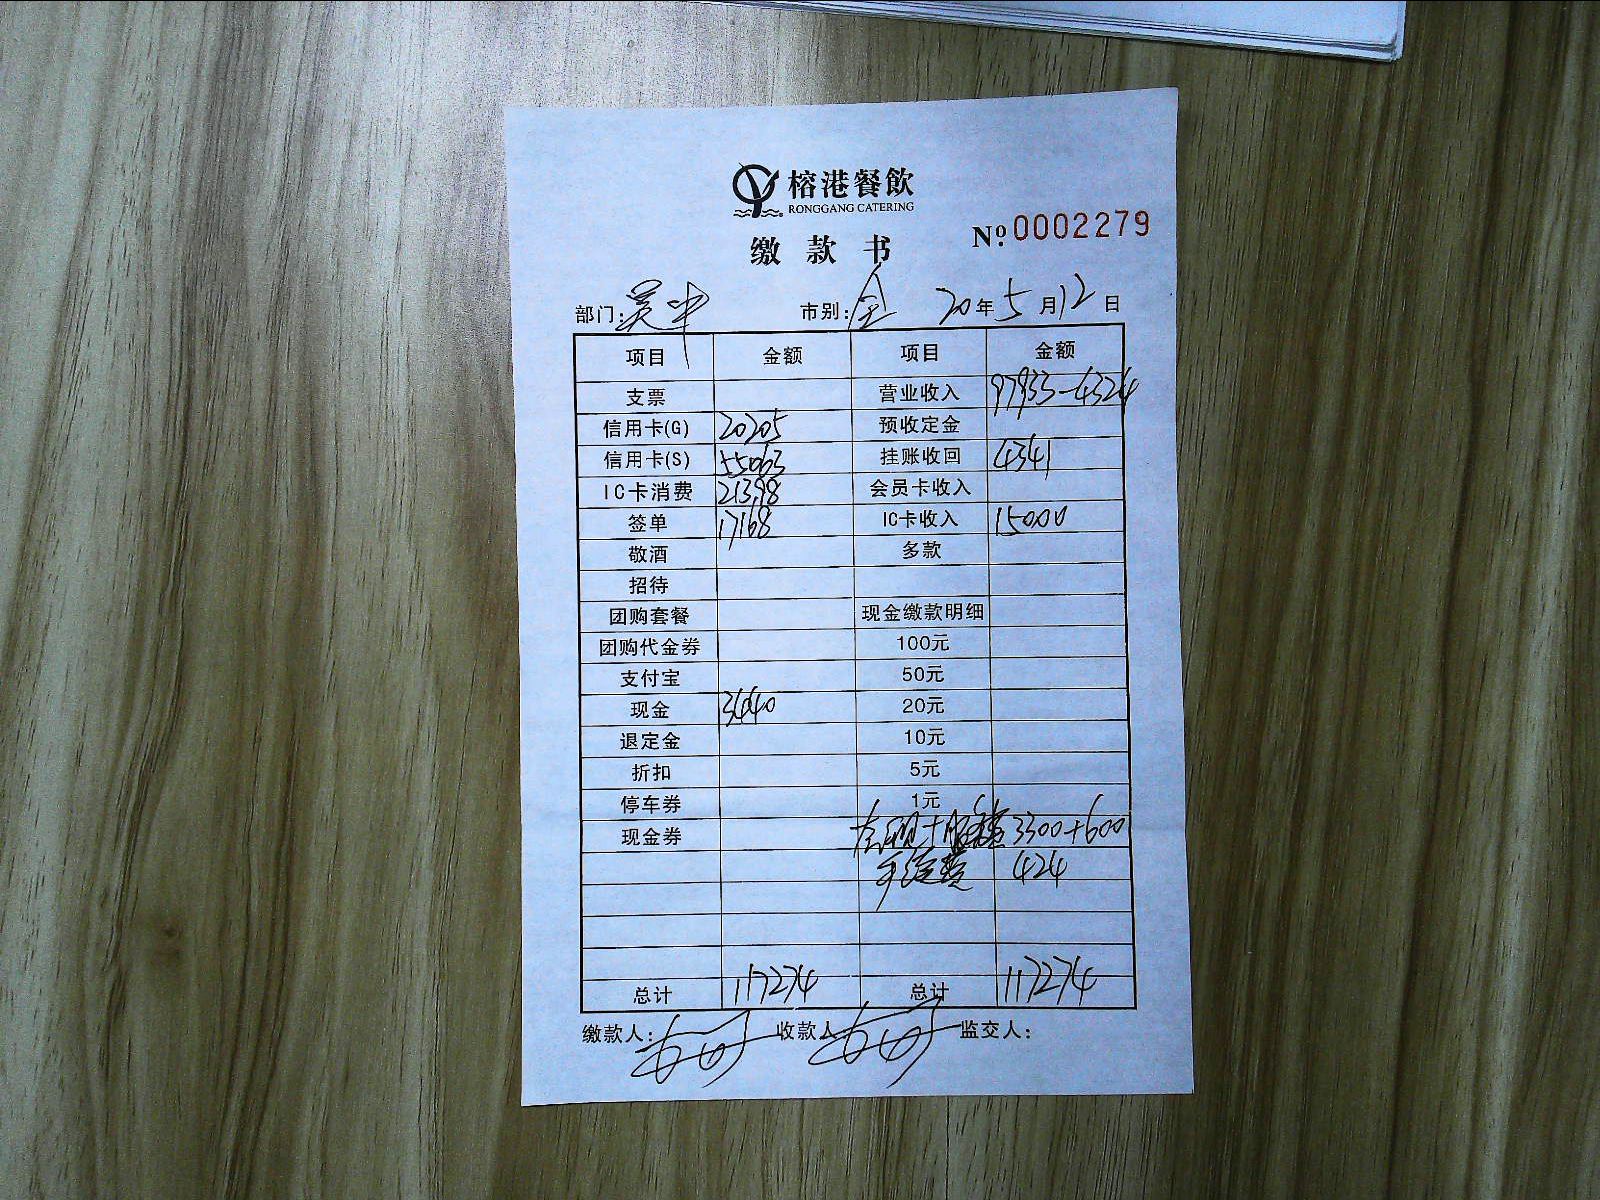 榕港餐飲
RONGGANG CATERING
缴款书
№ 0002279
部门：吴中 市别：全 20年5月12日
项目 金额 项目 金额
支票 营业收入 97933-4324
信用卡(G) 20205 预收定金
信用卡(S) 55063 挂账收回 4341
IC卡消费 21398 会员卡收入
签单 17168 IC卡收入 15000
敬酒 多款
招待
团购套餐 现金缴款明细
团购代金券 100元
支付宝 50元
现金 3440 20元
退定金 10元
折扣 5元
停车券 1元
现金券 3300+600
手续费 424
总计 117274 总计 117274
缴款人： 收款人 监交人：